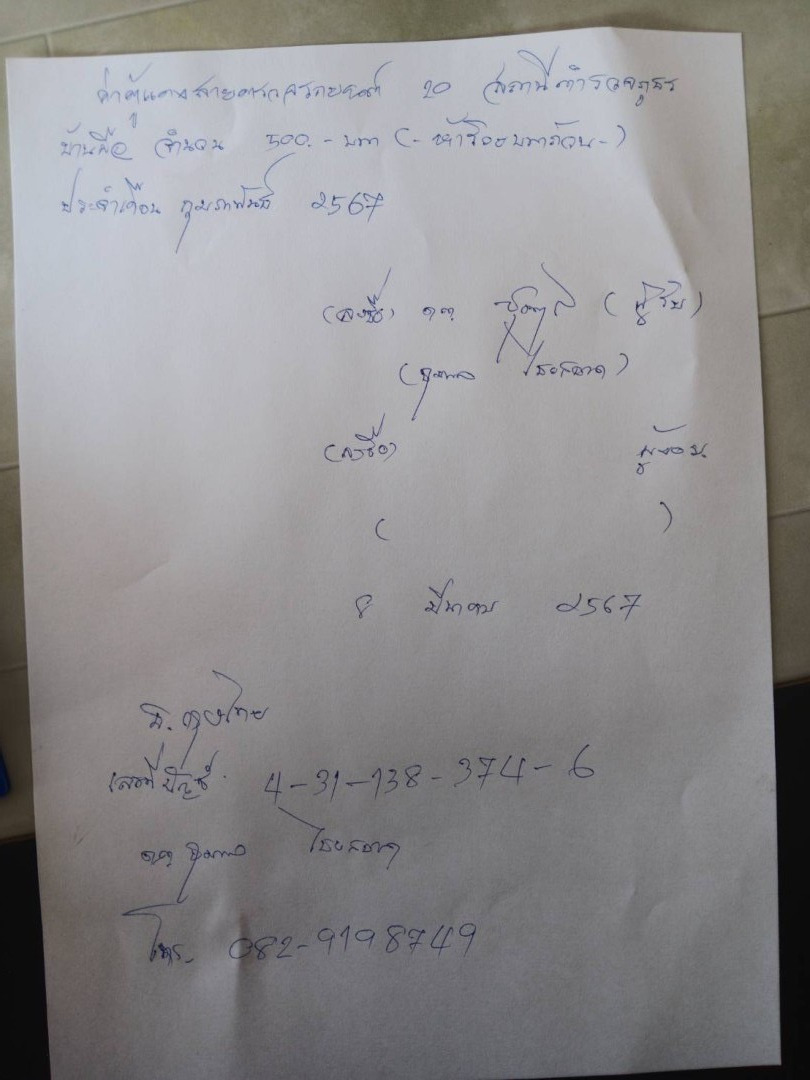 ค่าตู้แดงสายตรวจรถยนต์ 20 สถานีตำรวจภูธร
บ้านผือ จำนวน 500.- บาท (- ห้าร้อยบาทถ้วน -)
ประจำเดือน กุมภาพันธ์ 2567
(ลงชื่อ) ด.ต. (ผู้รับ)
(ลงชื่อ) ผู้จ่าย
( )
8 มีนาคม 2567
ธ. กรุงไทย
เลขที่บัญชี 4-31-138-374-6
ด.ต.
โทร. 082-9198749